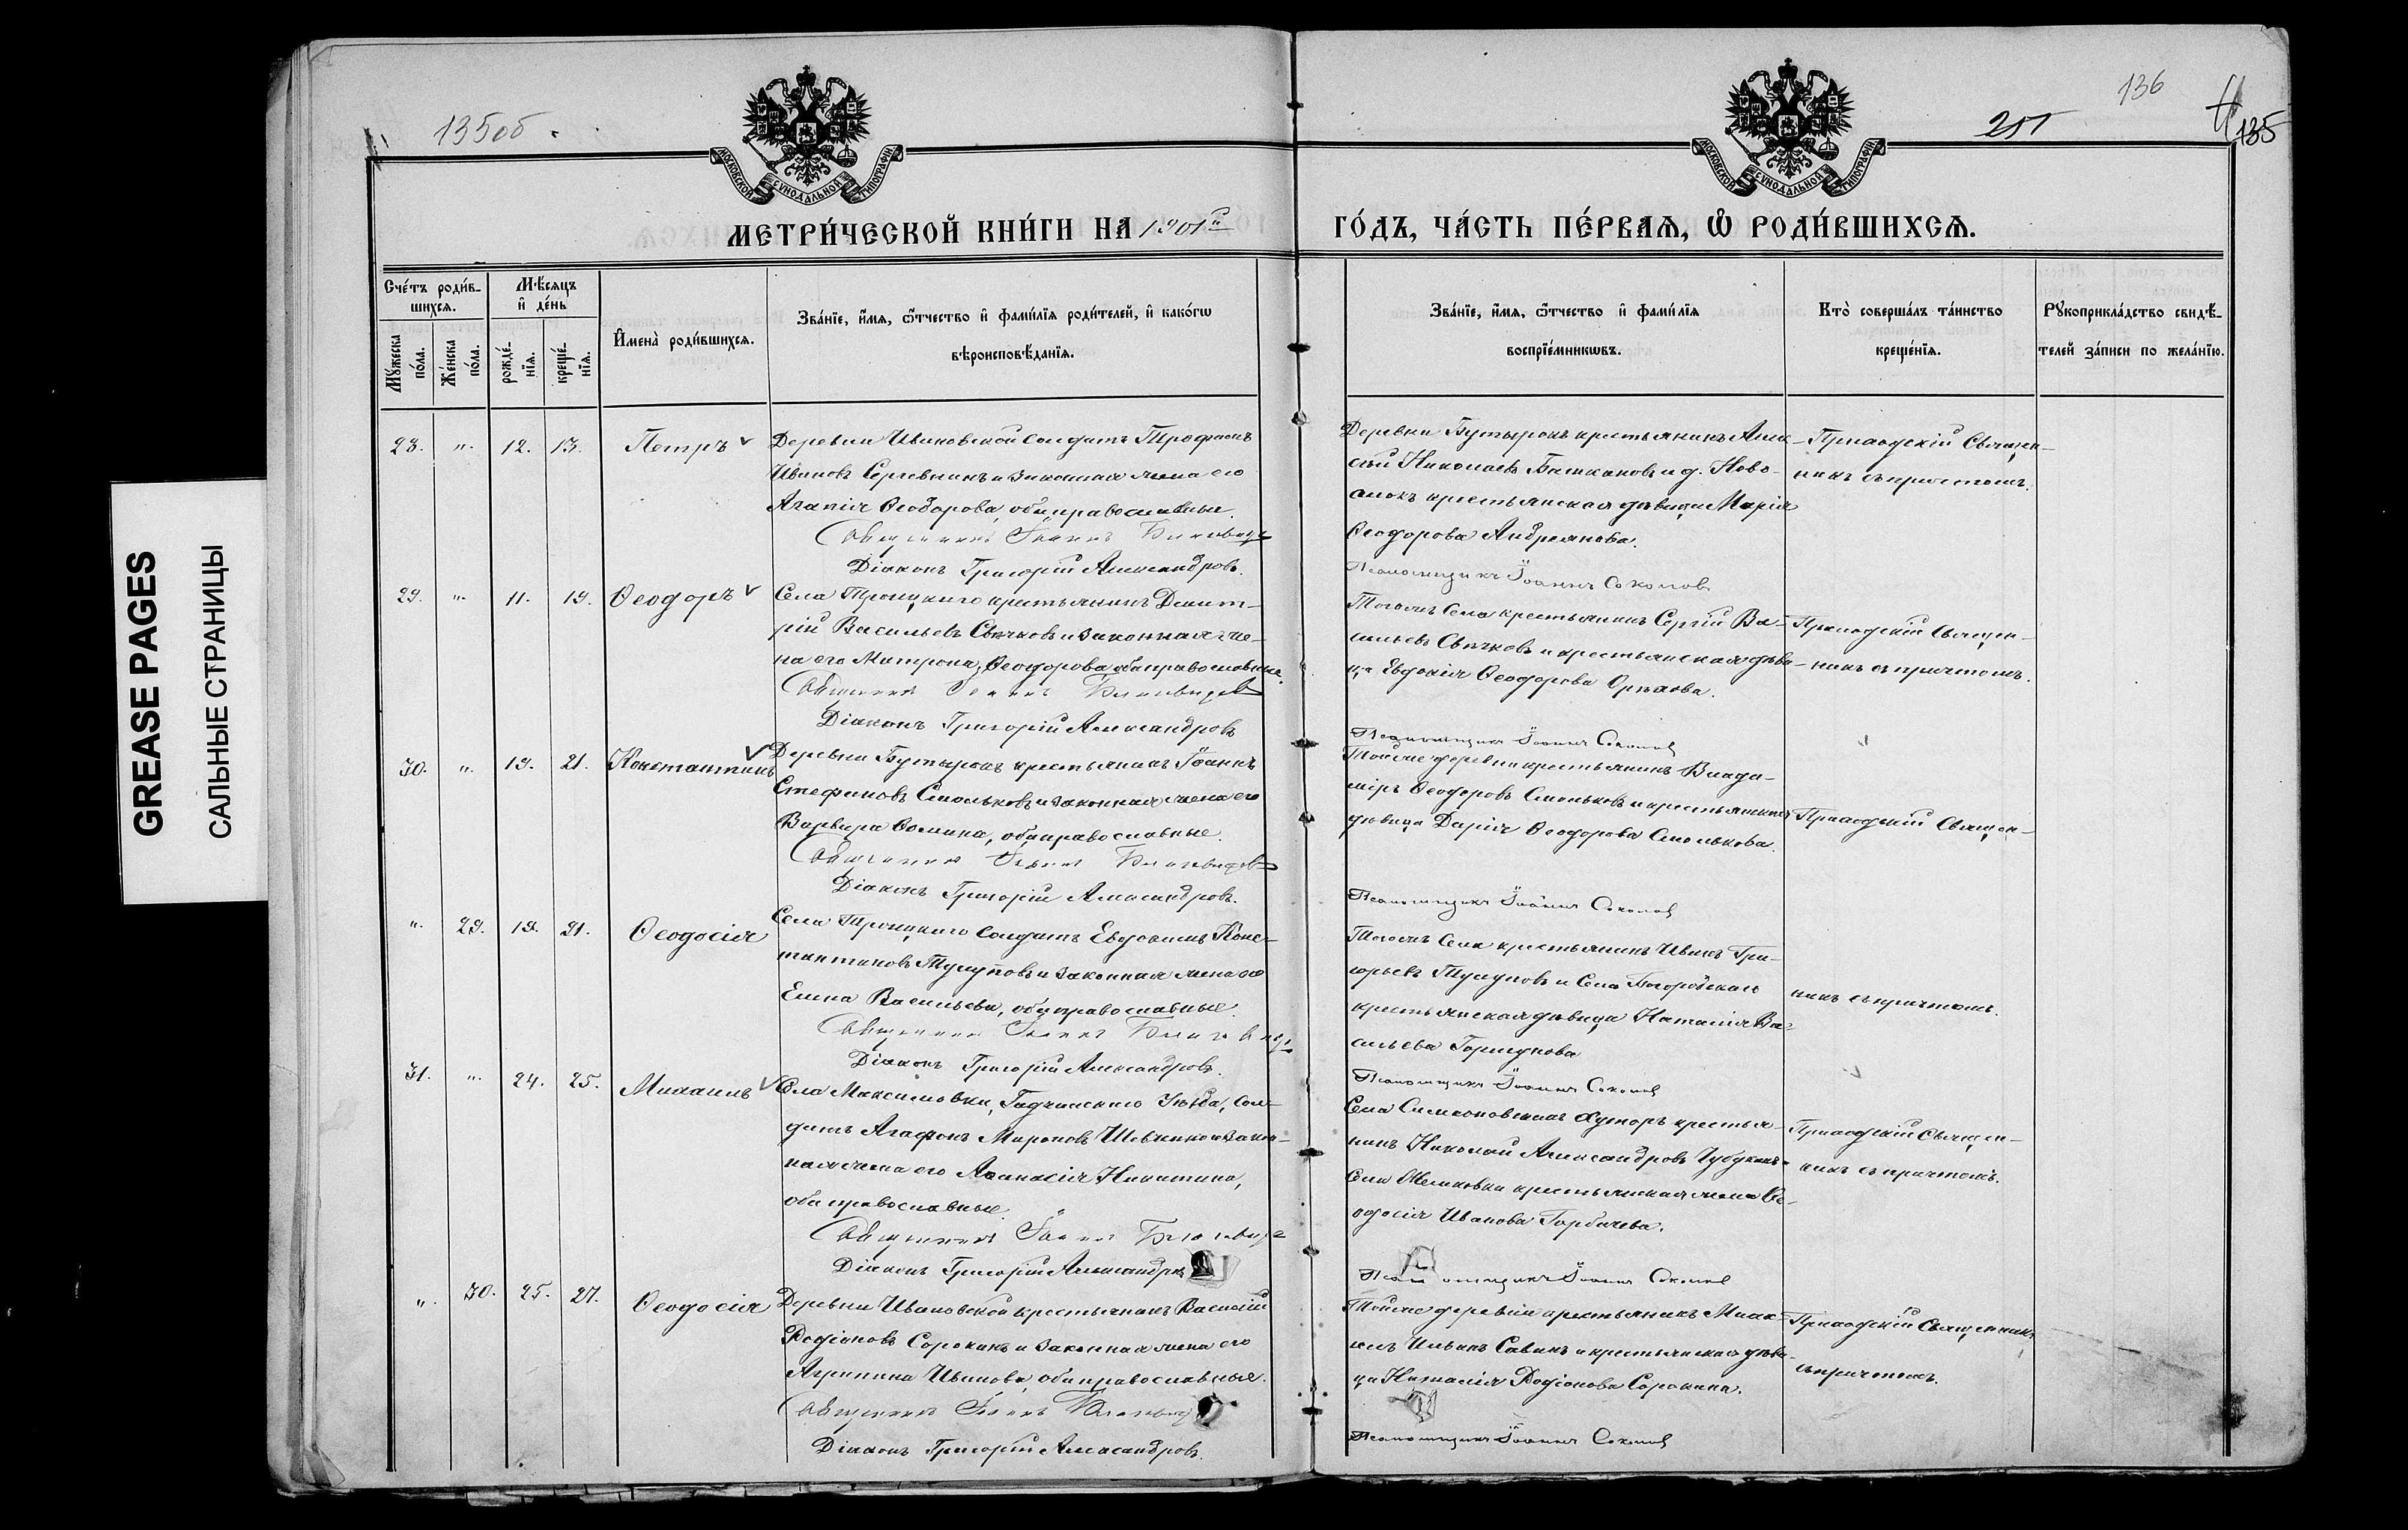 GREASE PAGES
САЛЬНЫЕ СТРАНИЦЫ
135об
136
135
МОСКОВСКОЙ СѴНОДАЛЬНОЙ ТИПОГРАФІИ
МОСКОВСКОЙ СѴНОДАЛЬНОЙ ТИПОГРАФІИ
МЕТРИ́ЧЕСКОЙ КНИ́ГИ НА 1901й
ГО́ДЪ, ЧА́СТЬ ПЕ́РВАѦ, Ѡ҆ РОДИ́ВШИХСѦ.
Сче́тъ роди́в-
шихсѧ.
Мꙋ́жеска по́ла.
Же́нска по́ла.
Мѣ́сѧцъ
и҆ де́нь
рожде́-
нїѧ.
креще́-
нїѧ.
И҆мена̀ роди́вшихсѧ.
Зва́нїе, и҆́мѧ, ѻ҆́тчество и҆ фами́лїѧ роди́телей, и҆ како́гѡ
вѣроисповѣ́данїѧ.
Зва́нїе, и҆́мѧ, ѻ҆́тчество и҆ фами́лїѧ
воспрїе́мникѡвъ.
Кто̀ соверша́лъ та́инство
креще́нїѧ.
Рꙋкоприкла́дство свидѣ́-
телей за́писи по жела́нїю.
28. „ 12. 13. Петръ
Деревни Ивановской солдатъ Трофимъ
Ивановъ Сергевнинъ и законная жена его
Агапія Ѳеодорова, оба православные.
Священникъ Іоаннъ
Діаконъ Григорій Александровъ.
Деревни Бутырокъ крестьянинъ Алек-
сѣй Николаевъ и д. Ново-
крестьянская дѣвица Марія
Ѳеодорова Андреянова.
Псаломщикъ Іоаннъ Соколовъ
Приходскій Священ-
никъ съ причтомъ.
29. „ 11. 19. Ѳеодоръ
Села Троицкаго крестьянинъ Димит-
рій Васильевъ Свѣчковъ и законная же-
на его Матрона Ѳеодорова, оба православные.
Священникъ Іоаннъ
Діаконъ Григорій Александровъ
Тогожъ Села крестьянинъ Сергій Ва-
сильевъ Свѣчковъ и крестьянская дѣви-
ца Евдокія Ѳеодорова Орѣхова.
Псаломщикъ Іоаннъ Соколовъ
Приходскій Священ-
никъ съ причтомъ.
30. „ 19. 21. Константинъ
Деревни Бутырокъ крестьянинъ Іоаннъ
Стефановъ Смольковъ и законная жена его
Варвара Ѳомина, оба православные.
Священникъ Іоаннъ
Діаконъ Григорій Александровъ.
Тойже деревни крестьянинъ Влади-
міръ Ѳеодоровъ Смольковъ и крестьянская
дѣвица Дарія Ѳеодорова Смолькова.
Псаломщикъ Іоаннъ Соколовъ
Приходскій Священ-
„ 29. 19. 21. Ѳеодосія
Села Троицкаго солдатъ Евдокимъ Конс-
тантиновъ Тулуповъ и законная жена его
Елена Васильева, оба православные.
Священникъ Іоаннъ
Діаконъ Григорій Александровъ.
Тогожъ Села крестьянинъ Иванъ Гри-
горьевъ Тулуповъ и Села Богородскаго
крестьянская дѣвица Наталія Ва-
сильева Горшунова
Псаломщикъ Іоаннъ Соколовъ
никъ съ причтомъ.
31. „ 24. 25. Михаилъ
Села Максимовки, Гадячскаго Уѣзда, сол-
датъ Агафонъ Мироновъ Шевченко и закон-
ная жена его Аѳанасія Никитина,
оба православные.
Священникъ Іоаннъ
Діаконъ Григорій Александровъ
Села хуторъ крестья-
нинъ Николай Александровъ
Села крестьянская жена Ѳе-
одосія Иванова Горбачева.
Псаломщикъ Іоаннъ Соколовъ
Приходскій Священ-
никъ съ причтомъ.
„ 30. 25. 27. Ѳеодосія
Деревни Ивановской крестьянинъ Василій
Родіоновъ Сорокинъ и законная жена его
Агрипина Иванова, оба православные.
Священникъ Іоаннъ
Діаконъ Григорій Александровъ.
Тойже деревни крестьянинъ Миха-
илъ Ильинъ Савинъ и крестьянская дѣви-
ца Наталія Родіонова Сорокина.
Псаломщикъ Іоаннъ Соколовъ
Приходскій Священникъ
съ причтомъ.